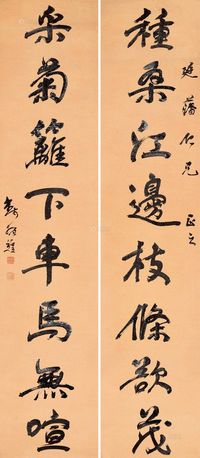 種桑江邊枝條欲茂
廷蕃仁兄 正之
采菊籬下車馬無喧